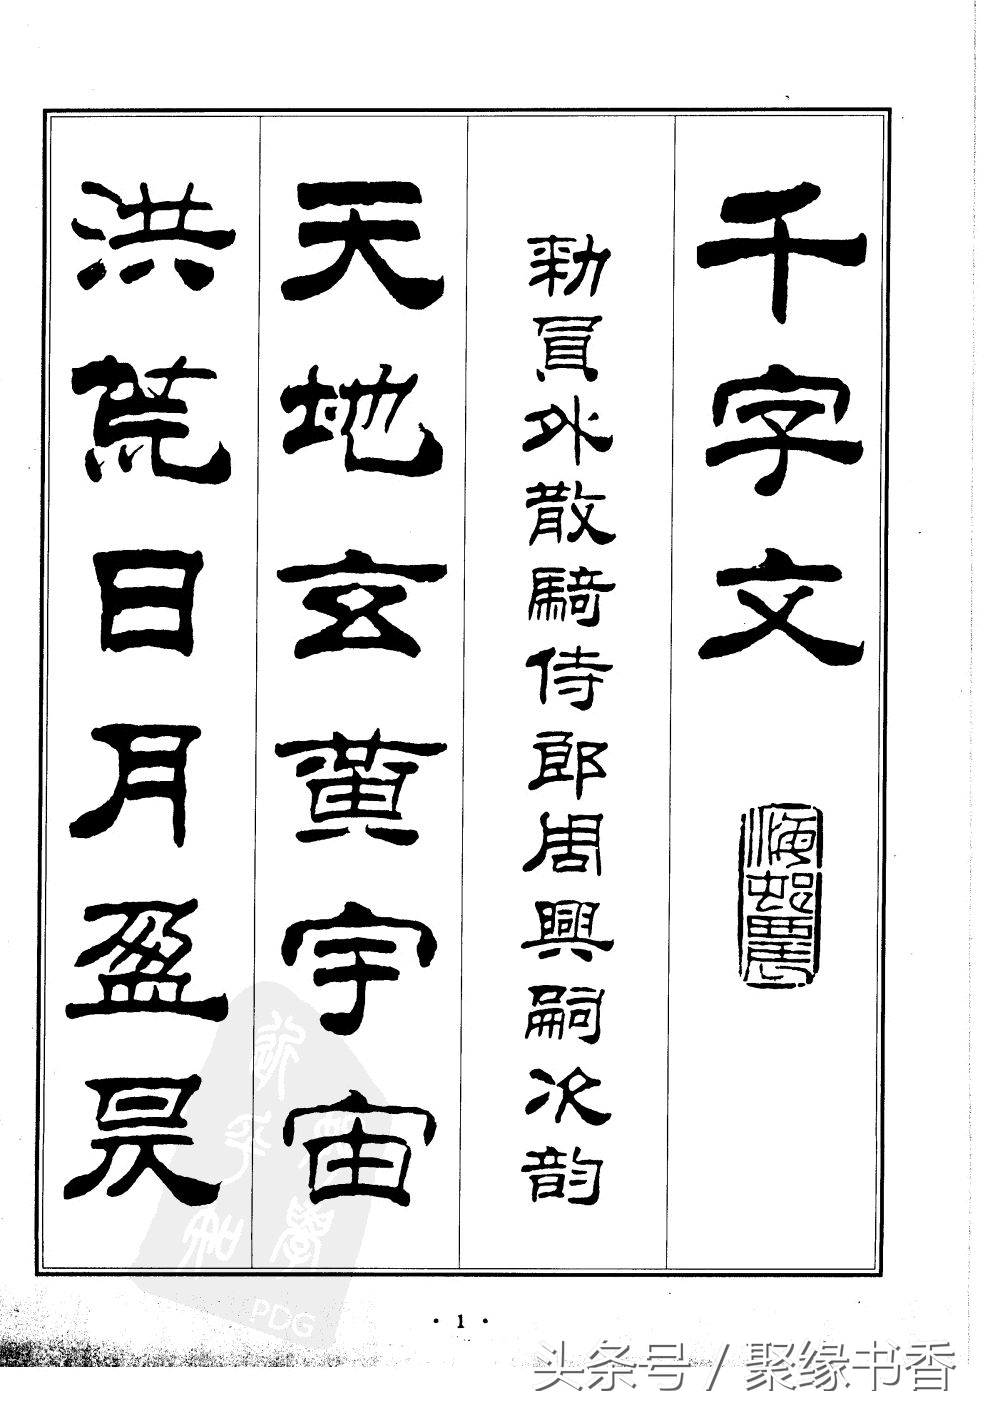 千字文
勑員外散騎侍郎周興嗣次韵
天地玄黃宇宙
洪荒日月盈昃
· 1 ·
PDG
头条号 / 聚缘书香